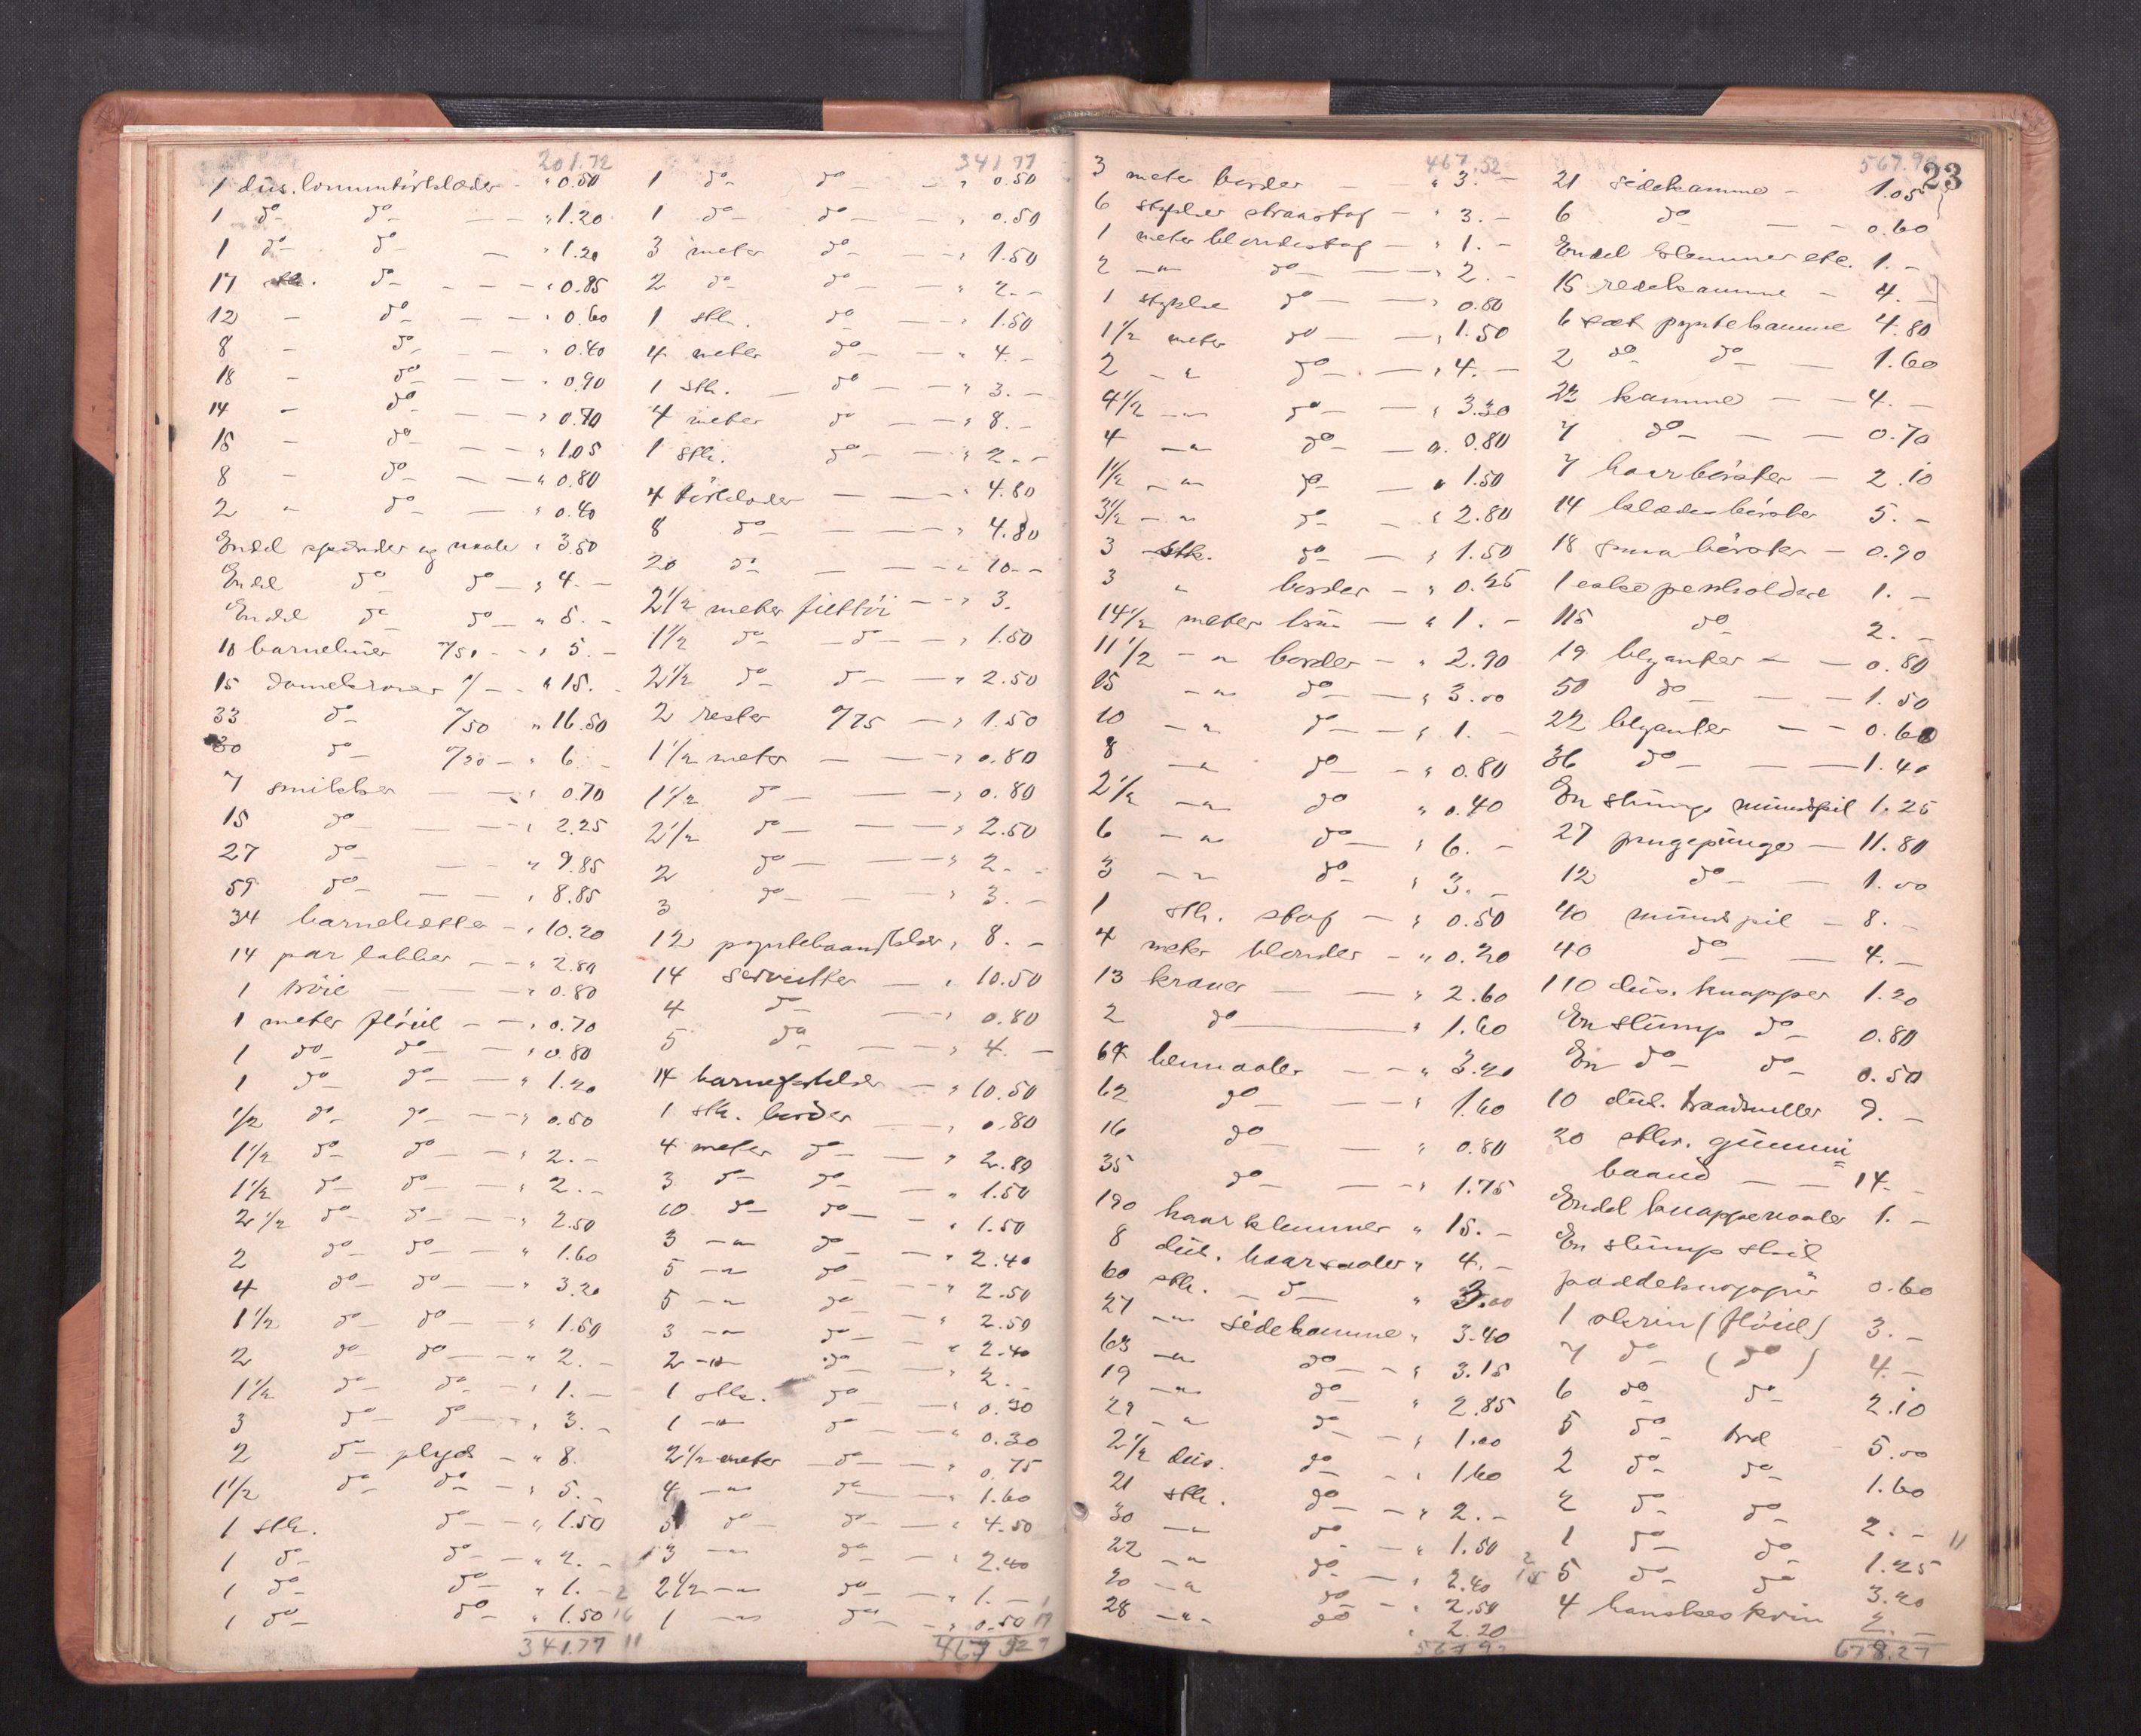 201.72
1 düs. lommetörklæder - " 0.50
1 do do - " 1.20
1 do do - " 1.20
17 stk. do - " 0.85
12 - do - " 0.60
8 - do - " 0.40
18 - do - " 0.90
14 - do - " 0.70
15 - do - " 1.05
8 - do - " 0.80
2 - do - " 0.40
Endel spænder og naale " 3.50
Endel do do - " 4.-
Endel do do - " 5.-
10 barneluer a/50 - " 5.-
15 damekraver a/- - " 15.-
33 do a/50 " 16.50
30 do a/20 - " 6.-
7 smikker - " 0.70
15 do - " 2.25
27 do - " 9.85
59 do - " 8.85
34 barnehætter - " 10.20
14 par labber - " 2.80
1 tröie - " 0.80
1 meter flöiel - " 0.70
1 do do - " 0.80
1 do do - " 1.20
1/2 do do - " 0.50
1 1/2 do do - " 2.-
1 1/2 do do - " 2.-
2 1/2 do do - " 2.50
2 do do - " 1.60
4 do do - " 3.20
1 1/2 do do - " 1.50
2 do do - " 2.-
1 1/2 do do - " 1.-
3 do do - " 3.-
2 do plyds - " 8.
1 1/2 do do - " 5.-
1 stk. do - " 1.50
1 do do - " 2.-
1 do do - " 1.-
1 do do - " 1.50
341.77
341.77
1 do do - " 0.50
1 do do - " 0.50
3 meter do - " 1.50
2 do do - " 2.-
1 stk. do - " 1.50
4 meter do - " 4.-
1 stk. do - " 3.-
4 meter do - " 8.-
1 stk. do - " 2.-
4 törklæder - " 4.80
8 do - " 4.80
20 do - " 10.-
2 1/2 meter filttöi - " 3.
1 1/2 do do - " 1.50
2 1/2 do do - " 2.50
2 rester a/75 - " 1.50
1 1/2 meter - " 0.80
1 1/2 do - " 0.80
2 1/2 do - " 2.50
2 do - " 2.-
3 do - " 3.-
12 pyntehaandklær " 8.-
14 servietter - " 10.50
4 do - " 0.80
5 do - " 4.-
14 barneforklær - " 10.50
1 stk. border - " 0.80
4 meter do - " 2.80
3 do do - " 1.50
10 do do - " 1.50
3 -"- do - " 2.40
5 -"- do - " 2.50
5 -"- do - " 2.50
3 -"- do - " 2.40
2 -"- do - " 2.-
1 stk. do - " 0.30
1 -"- do - " 0.30
2 1/2 meter do - " 0.75
4 -"- do - " 1.60
5 do do - " 4.50
3 -"- do - " 2.40
2 1/2 -"- do - " 1.-
1 -"- do - " 0.50
467.52
467.52
3 meter border - " 3.-
6 stykker straastof - " 3.-
1 meter blondestof - " 1.-
2 -"- do - " 2.-
1 stykke do - " 0.80
1 1/2 meter do - " 1.50
2 -"- do - " 4.-
4 1/2 -"- do - " 3.30
4 -"- do - " 0.80
1 1/2 -"- do - " 1.50
3 1/2 -"- do - " 2.80
3 stk. do - " 1.50
3 " border - " 0.25
14 1/2 meter - " 1.-
11 1/2 -"- border - " 2.90
15 -"- do - " 3.00
10 -"- do - " 1.-
8 -"- do - " 0.80
2 1/2 -"- do " 0.40
6 -"- do - " 6.-
3 -"- do " 3.-
1 stk. stof - " 0.50
4 meter blonder - " 0.20
13 kraver - " 2.60
2 do - " 1.60
64 hennaaler - " 3.20
62 do - " 1.60
16 do - " 0.80
35 do - " 1.75
190 haarklemmer " 15.-
8 düs. haarnaaler " 4.-
60 stk. do " 3.00
27 -"- sidekamme " 3.40
63 -"- do - " 3.15
19 -"- do " 2.85
29 -"- do - " 1.00
2 1/2 düs. do - " 1.60
21 stk. do - " 2.-
30 -"- do - " 1.50
22 -"- do - " 2.40
20 -"- do - " 2.50
28 -"- do " 2.20
567.92
567.92
23
21 sidekamme - 1.05
6 do - 0.60
Endel klemmer etc. 1.-
15 redekamme - 4.-
6 sæt pyntekamme 4.80
2 do do - 1.60
22 kamme - 4.-
7 do - 0.70
7 haarbörster - 2.10
14 klædesbörster 5.-
18 smaa börster - 0.90
1 eske penholdere 1.-
115 do 2.-
19 blyanter - 0.80
50 do - 1.50
22 blyanter - 0.60
36 do - 1.40
En slump mundspil 1.25
27 pengepunge - 11.80
12 do - 1.00
40 mundspil - 8.-
40 do - 4.-
110 düs. knapper 1.20
En slump do - 0.80
En do do - 0.50
10 düs. traadsneller 9.-
20 stkr. gummi=
baand - 14.-
Endel knappenaaler 1.-
En slump skil
paddeknapper 0.60
1 skrin (flöiel) 3.-
7 do (do) 4.-
6 do do 2.10
5 do træ 5.00
2 do do 1.60
2 do do 2.-
1 do do 1.25
5 do do 3.20
4 hanskeskrin 2.-
678.27